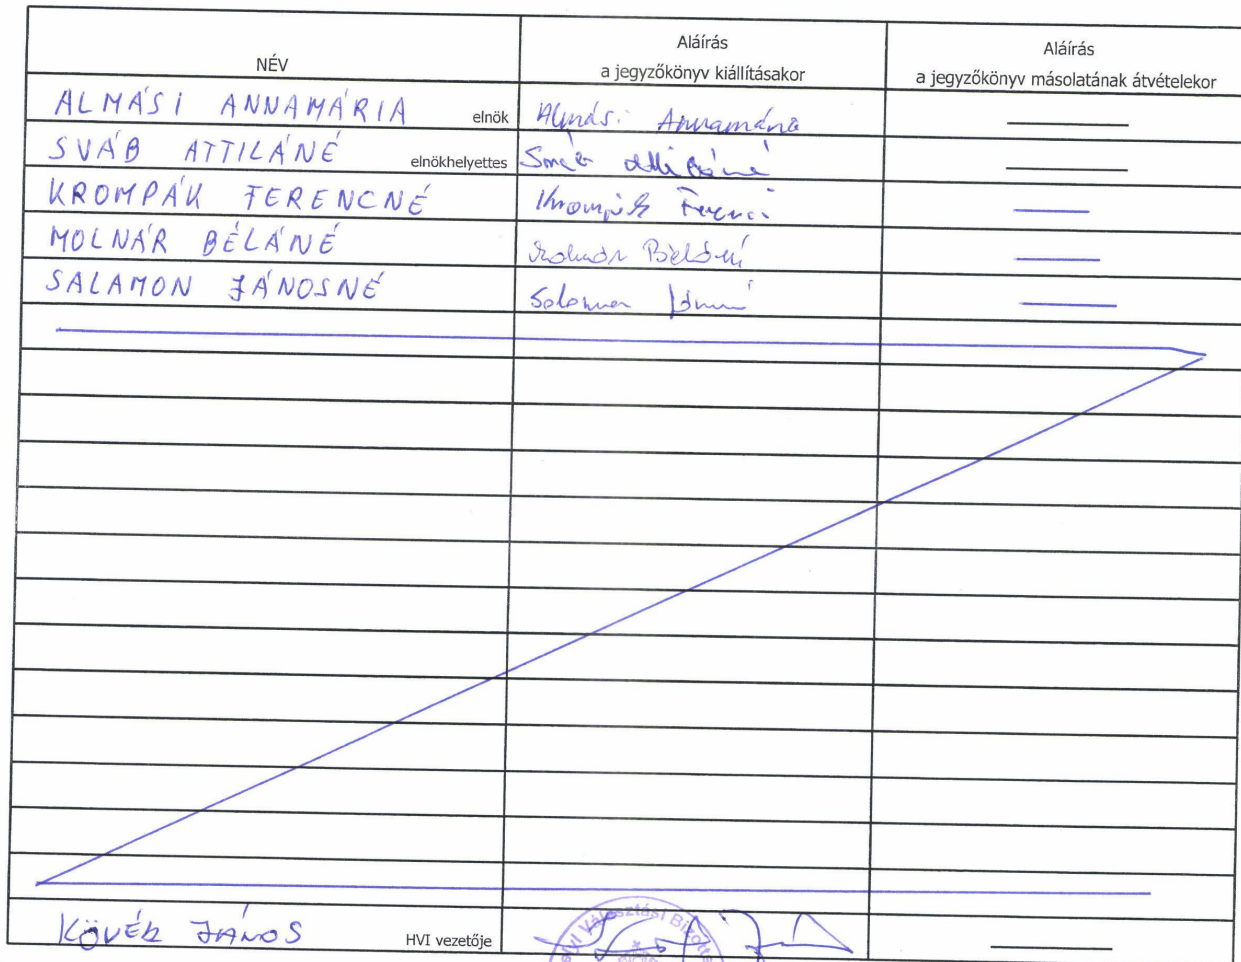 NÉV
Aláírás
a jegyzőkönyv kiállításakor
Aláírás
a jegyzőkönyv másolatának átvételekor
ALMÁSI ANNAMÁRIA elnök Almási Annamária
SVÁB ATTILÁNÉ elnökhelyettes Sváb Attiláné
KROMPÁK FERENCNÉ Krompák
MOLNÁR BÉLÁNÉ Molnár Béláné
SALAMON JÁNOSNÉ Salamon
KÖVÉR JÁNOS HVI vezetője
Választási